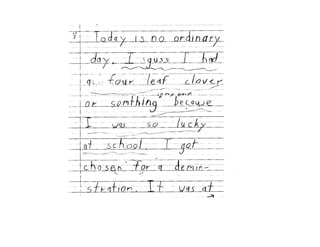 Today is no ordinary
day. I guss I had
a four leaf clover
or somthing because
I was so lucky
at school. I got
chosen for a demin-
stration. It was at